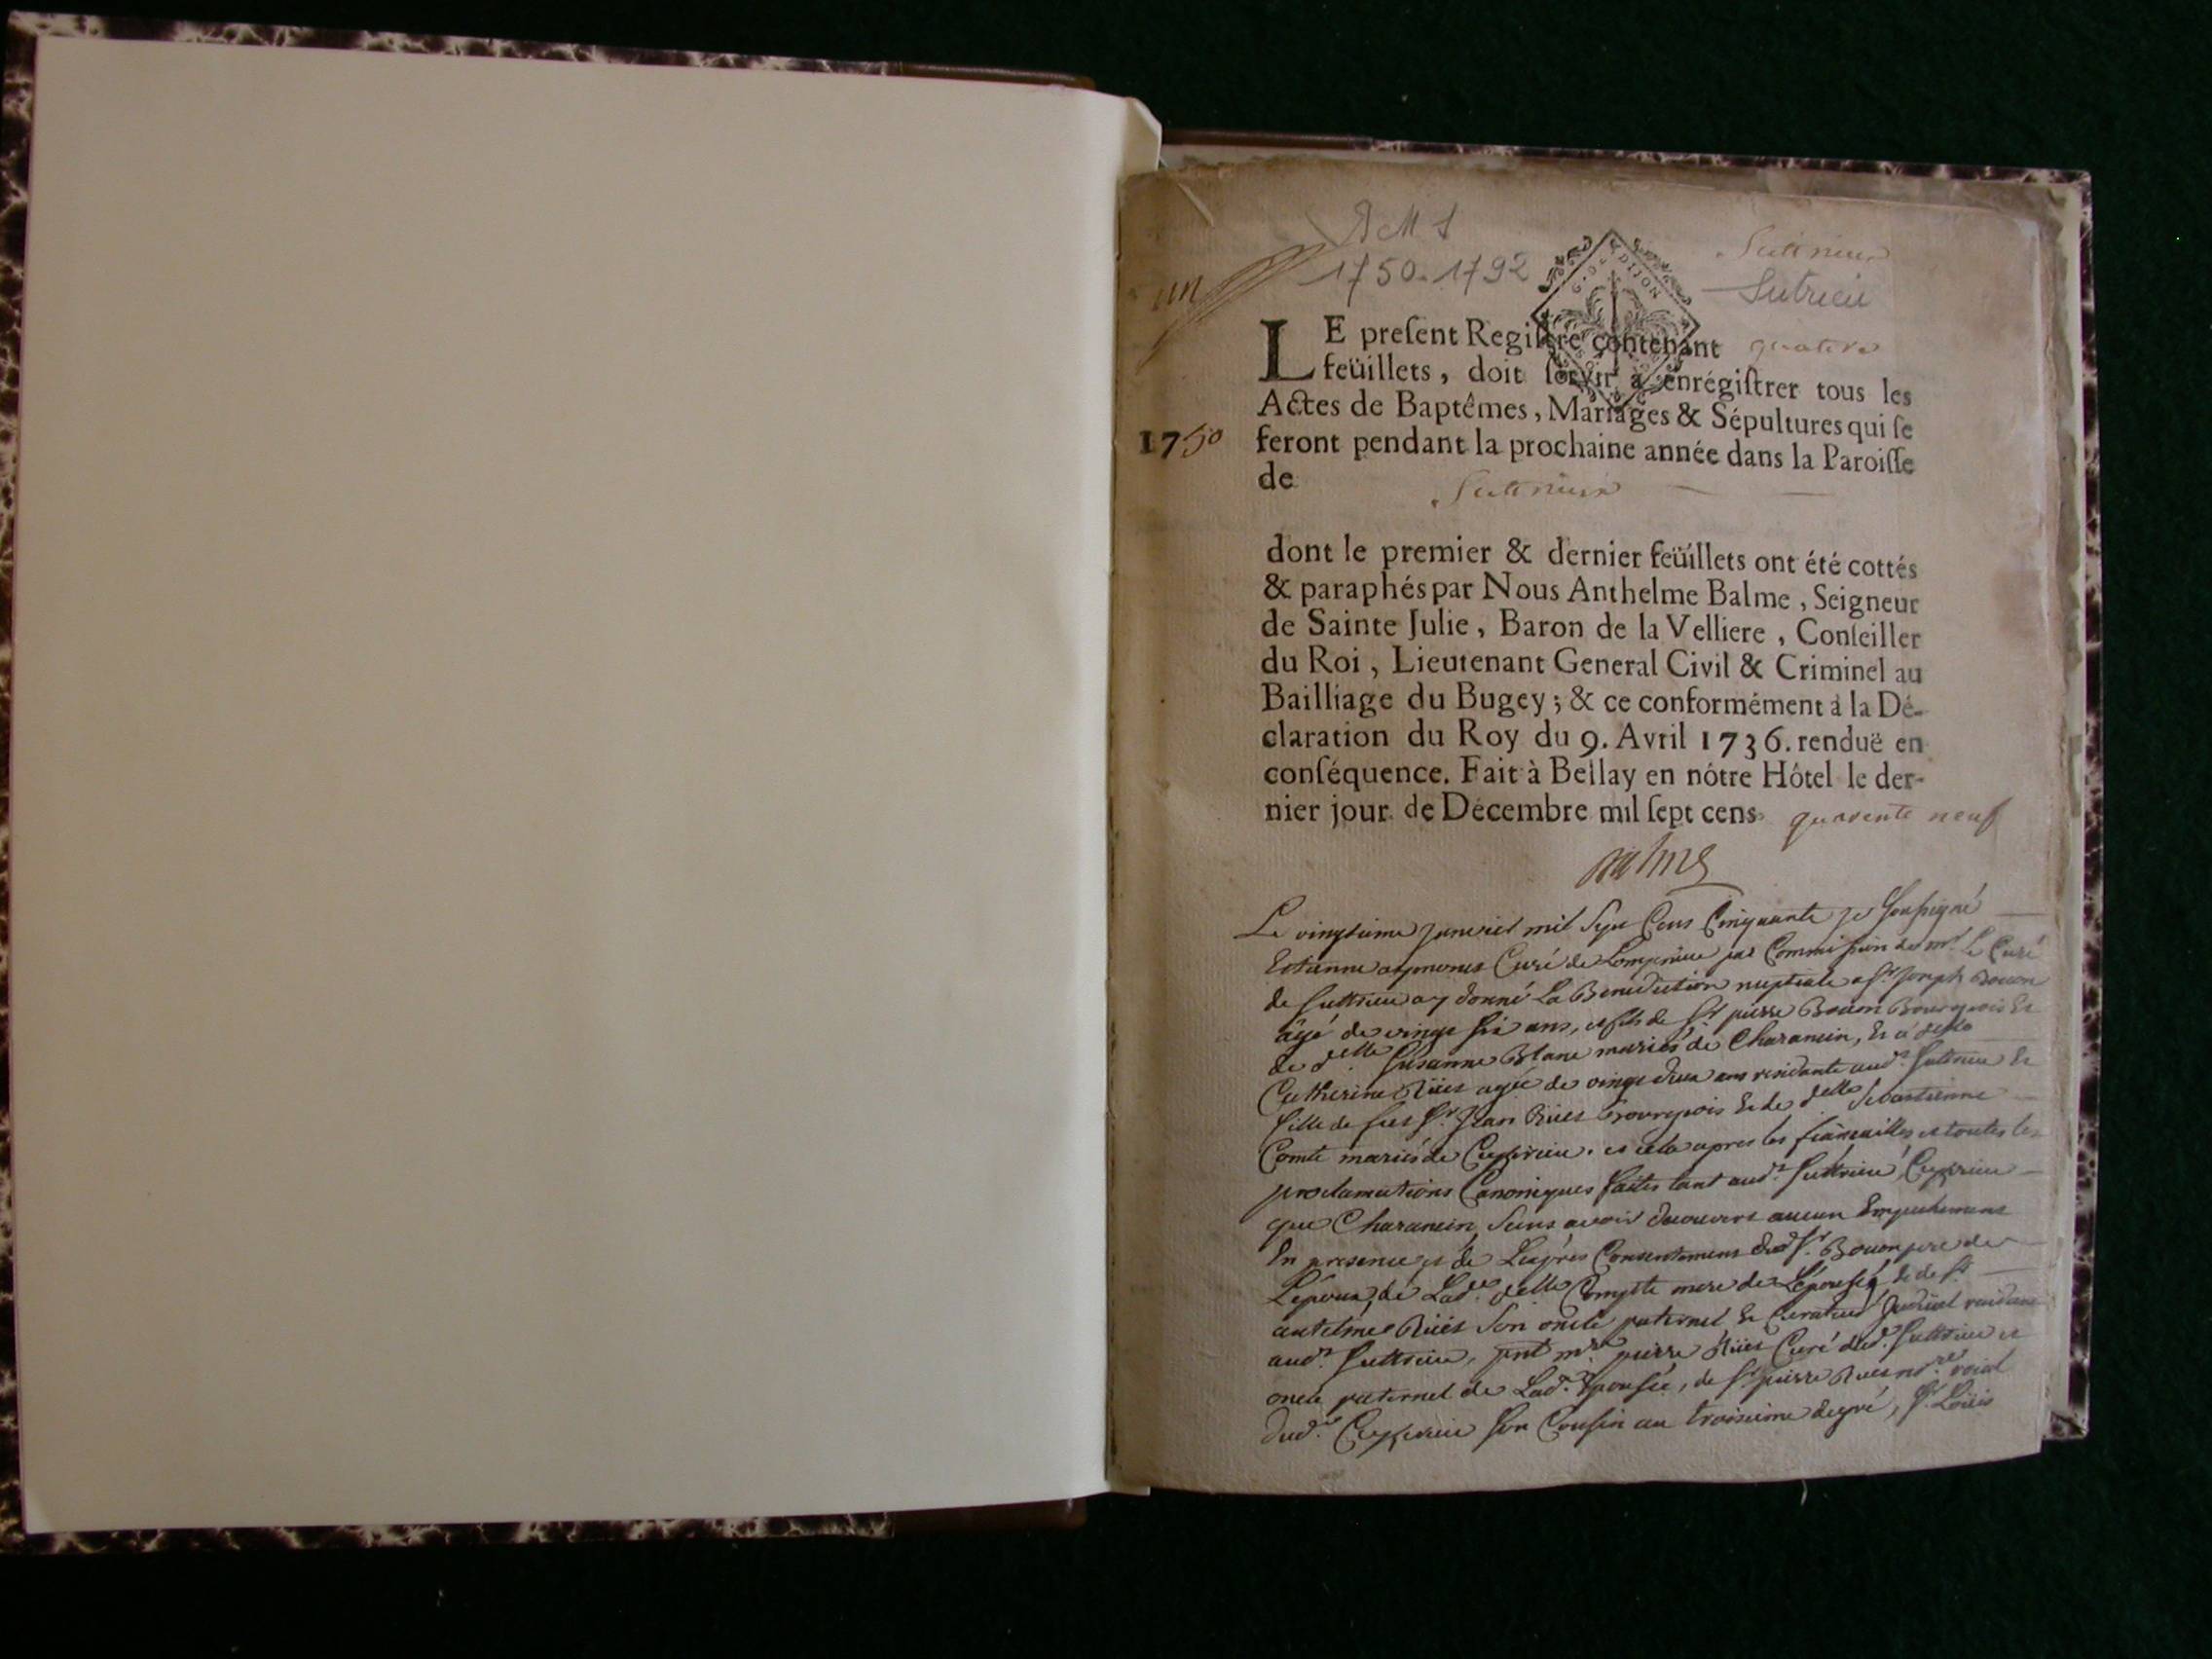 BMS
1750-1792
Suttrieux
Sutrieu
un
G. DE DIJON
LE preſent Regiſtre contenant quatre
feüillets, doit ſervir à enrégiſtrer tous les
Actes de Baptêmes, Mariages & Sépultures qui ſe
1750 feront pendant la prochaine année dans la Paroiſſe
de Suttrieux
dont le premier & dernier feüillets ont été cottés
& paraphés par Nous Anthelme Balme, Seigneur
de Sainte Julie, Baron de la Velliere, Conſeiller
du Roi, Lieutenant General Civil & Criminel au
Bailliage du Bugey; & ce conformément à la Dé-
claration du Roy du 9. Avril 1736. renduë en
conſéquence. Fait à Bellay en nôtre Hôtel le der-
nier jour de Décembre mil ſept cens quarente neuf
Balme
Le vingtieme janvier mil Sept Cens Cinquante je Soussigné
Estienne Curé de Lompnieu par Commission de mr. Le Curé
de Suttrieu ay donné La Benediction nuptiale a Sr. Joseph Bouon
âgé de vingt six ans, et fils de Sr pierre Bouon Bourgeois Et
de delle Susanne Blanc mariés de Charancin, Et à delle
Catherine Rües agée de vingt deux ans residante audt Suttrieu Et
fille de feu Sr. Jean Rües bourgeois Et de delle Sebastienne
Comte mariés de Ceyzerieu. et cela apres les fiançailles et toutes les
proclamations Canoniques faites tant audt. Suttrieu, Ceyzerieu
que Charancin, Sans avoir decouvert aucun Empechement
En presence et de L'exprès Consentement dudt Sr. Bouon pere de
L'époux, de Lade. delle Compte mere de L'épousée, Et de Sr
antelme Rües Son oncle paternel Et Curateur residant
audt. Suttrieu, mre pierre Rües Curé dudt. Suttrieu et
oncle paternel de Lade. Epousée, de Sr pierre Rues nore. roial
dudt. Ceyzerieu Son Cousin au troisieme degré, Sr. Loüis